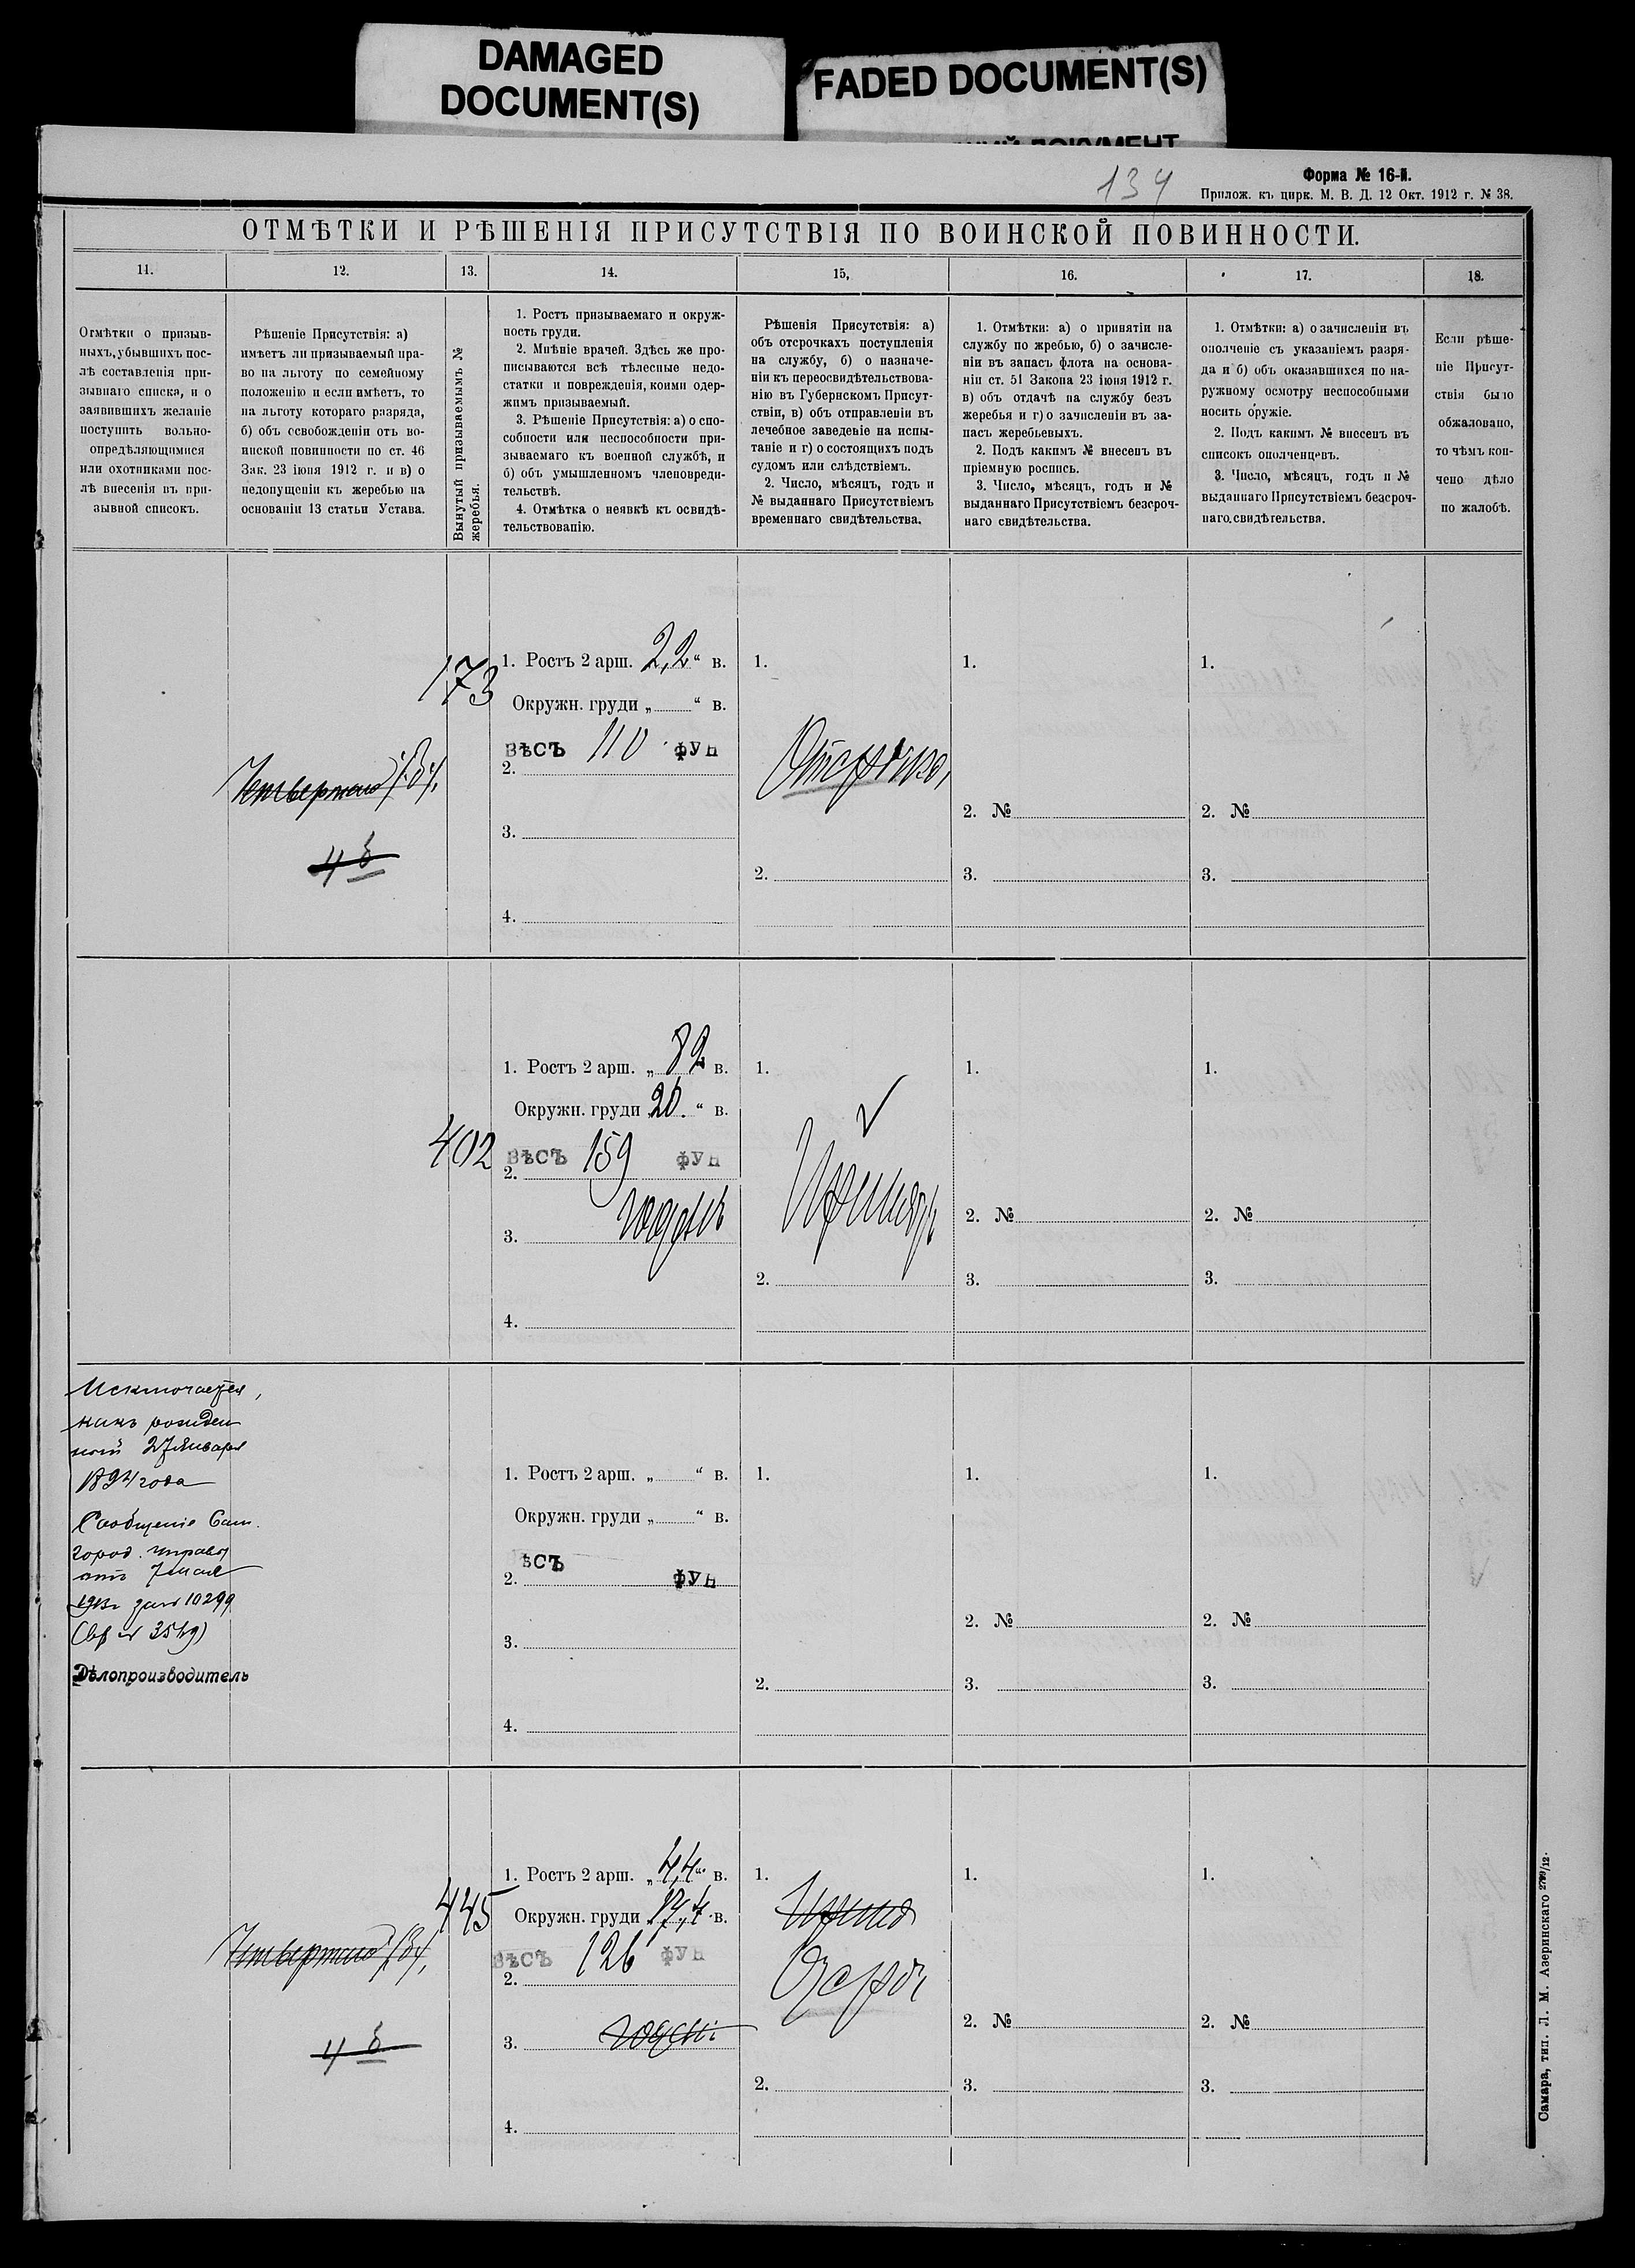 DAMAGED
DOCUMENT(S)
FADED DOCUMENT(S)
ДОКУМЕНТ
134
Форма № 16-й.
Прилож. къ цирк. М. В. Д. 12 Окт. 1912 г. № 38.
ОТМѢТКИ И РѢШЕНІЯ ПРИСУТСТВІЯ ПО ВОИНСКОЙ ПОВИННОСТИ.
11.
12.
13.
14.
15.
16.
17.
18.
Отмѣтки о призыв-
ныхъ, убывшихъ пос-
лѣ составленія при-
зывнаго списка, и о
заявившихъ желаніе
поступить вольно-
опредѣляющимися
или охотниками пос-
лѣ внесенія въ при-
зывной списокъ.
Рѣшеніе Присутствія: а)
имѣетъ ли призываемый пра-
во на льготу по семейному
положенію и если имѣетъ, то
на льготу котораго разряда,
б) объ освобожденіи отъ во-
инской повинности по ст. 46
Зак. 23 іюня 1912 г. и в) о
недопущеніи къ жеребью на
основаніи 13 статьи Устава.
Вынутый призываемымъ №
жеребья.
1. Ростъ призываемаго и окруж-
ность груди.
2. Мнѣніе врачей. Здѣсь же про-
писываются всѣ тѣлесные недо-
статки и поврежденія, коими одер-
жимъ призываемый.
3. Рѣшеніе Присутствія: а) о спо-
собности или неспособности при-
зываемаго къ военной службѣ, и
б) объ умышленномъ членовреди-
тельствѣ.
4. Отмѣтка о неявкѣ къ освидѣ-
тельствованію.
Рѣшенія Присутствія: а)
объ отсрочкахъ поступленія
на службу, б) о назначе-
ніи къ переосвидѣтельствова-
нію въ Губернскомъ Присут-
ствіи, в) объ отправленіи въ
лечебное заведеніе на испы-
таніе и г) о состоящихъ подъ
судомъ или слѣдствіемъ.
2. Число, мѣсяцъ, годъ и
№ выданнаго Присутствіемъ
временнаго свидѣтельства.
1. Отмѣтки: а) о принятіи на
службу по жребью, б) о зачисле-
ніи въ запасъ флота на основа-
ніи ст. 51 Закона 23 іюня 1912 г.
в) объ отдачѣ на службу безъ
жеребья и г) о зачисленіи въ за-
пасъ жеребьевыхъ.
2. Подъ какимъ № внесенъ въ
пріемную роспись.
3. Число, мѣсяцъ, годъ и №
выданнаго Присутствіемъ безсроч-
наго свидѣтельства.
1. Отмѣтки: а) о зачисленіи въ
ополченіе съ указаніемъ разря-
да и б) объ оказавшихся по на-
ружному осмотру неспособными
носить оружіе.
2. Подъ какимъ № внесенъ въ
списокъ ополченцевъ.
3. Число, мѣсяцъ, годъ и №
выданнаго Присутствіемъ безсроч-
наго свидѣтельства.
Если рѣше-
ніе Присут-
ствія было
обжаловано,
то чѣмъ кон-
чено дѣло
по жалобѣ.
173
1. Ростъ 2 арш. 2,2 “ в.
Окружн. груди „ “ в.
ВѢСЪ 110 ФУН
2.
3.
4.
Четвертаго
4
1.
Отсрочка,
2.
1.
2. №
3.
1.
2. №
3.
402
1. Ростъ 2 арш. „ 82 в.
Окружн. груди 20. “ в.
ВѢСЪ 159 ФУН
2.
3. годенъ
4.
1.
Принятъ
2.
1.
2. №
3.
1.
2. №
3.
Исключается,
какъ рожден
ный 27 Января
1894 года
Сообщеніе Сам.
город. управы
отъ 7 мая
1913г за № 10299
(вх № 3549)
Дѣлопроизводитель
1. Ростъ 2 арш. „ “ в.
Окружн. груди „ “ в.
ѢСЪ
ФУН
2.
3.
4.
1.
2.
1.
2. №
3.
1.
2. №
3.
445
Четвертаго
4
1. Ростъ 2 арш. „ 4,4 “ в.
Окружн. груди 19,4 в.
ВѢСЪ 126 ФУН
2.
3. годенъ
4.
1.
2.
1.
2. №
3.
1.
2. №
3.
Самара, тип. Л. М. Азеринскаго 2799/12.